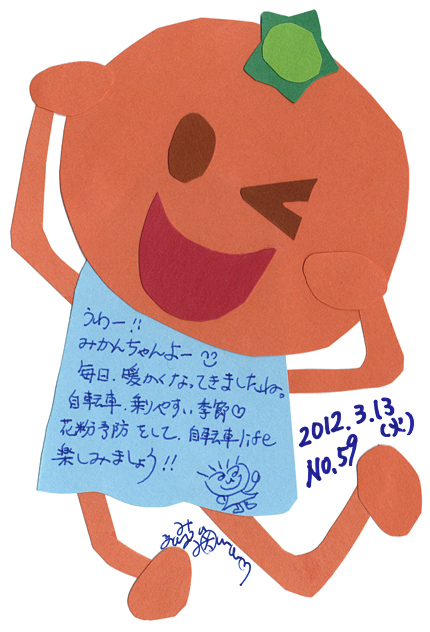 うわー!!
みかんちゃんよー
毎日、暖かくなってきましたね。
自転車、乗りやすい季節♡
花粉予防をして、自転車life
楽しみましょう!!
2012.3.13
(火)
No.59